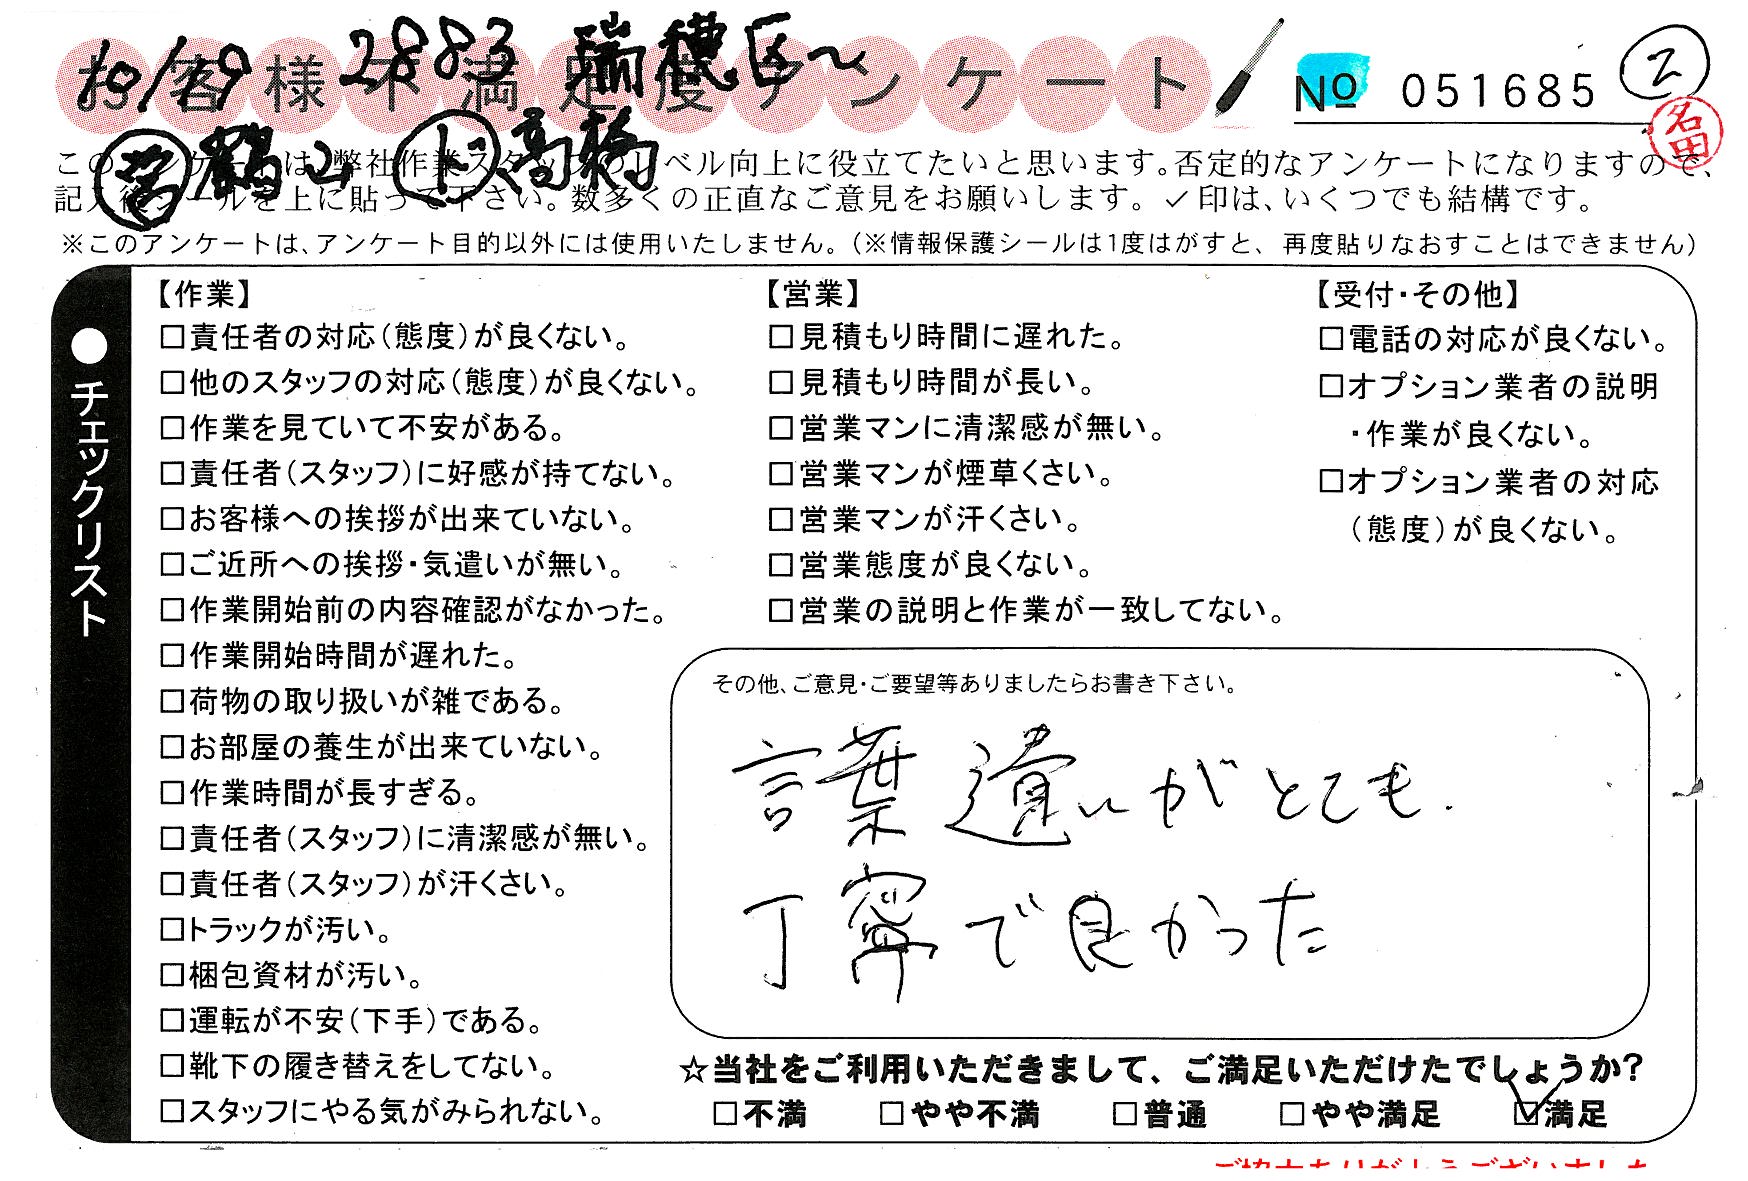 10/19 2883 瑞穂区～
お客様不満足度アンケート
No 051685 2
名田
営 鶴山 ド 高橋
このアンケートは、弊社作業スタッフのレベル向上に役立てたいと思います。否定的なアンケートになりますので、
記入後シールを上に貼って下さい。数多くの正直なご意見をお願いします。✓印は、いくつでも結構です。
※このアンケートは、アンケート目的以外には使用いたしません。(※情報保護シールは1度はがすと、再度貼りなおすことはできません)
●チェックリスト
【作業】
□責任者の対応(態度)が良くない。
□他のスタッフの対応(態度)が良くない。
□作業を見ていて不安がある。
□責任者(スタッフ)に好感が持てない。
□お客様への挨拶が出来ていない。
□ご近所への挨拶・気遣いが無い。
□作業開始前の内容確認がなかった。
□作業開始時間が遅れた。
□荷物の取り扱いが雑である。
□お部屋の養生が出来ていない。
□作業時間が長すぎる。
□責任者(スタッフ)に清潔感が無い。
□責任者(スタッフ)が汗くさい。
□トラックが汚い。
□梱包資材が汚い。
□運転が不安(下手)である。
□靴下の履き替えをしてない。
□スタッフにやる気がみられない。
【営業】
□見積もり時間に遅れた。
□見積もり時間が長い。
□営業マンに清潔感が無い。
□営業マンが煙草くさい。
□営業マンが汗くさい。
□営業態度が良くない。
□営業の説明と作業が一致してない。
【受付・その他】
□電話の対応が良くない。
□オプション業者の説明
・作業が良くない。
□オプション業者の対応
(態度)が良くない。
その他、ご意見・ご要望等ありましたらお書き下さい。
言葉遣いがとても
丁寧で良かった
☆当社をご利用いただきまして、ご満足いただけたでしょうか?
□不満 □やや不満 □普通 □やや満足 ☑満足
ご協力ありがとうございました